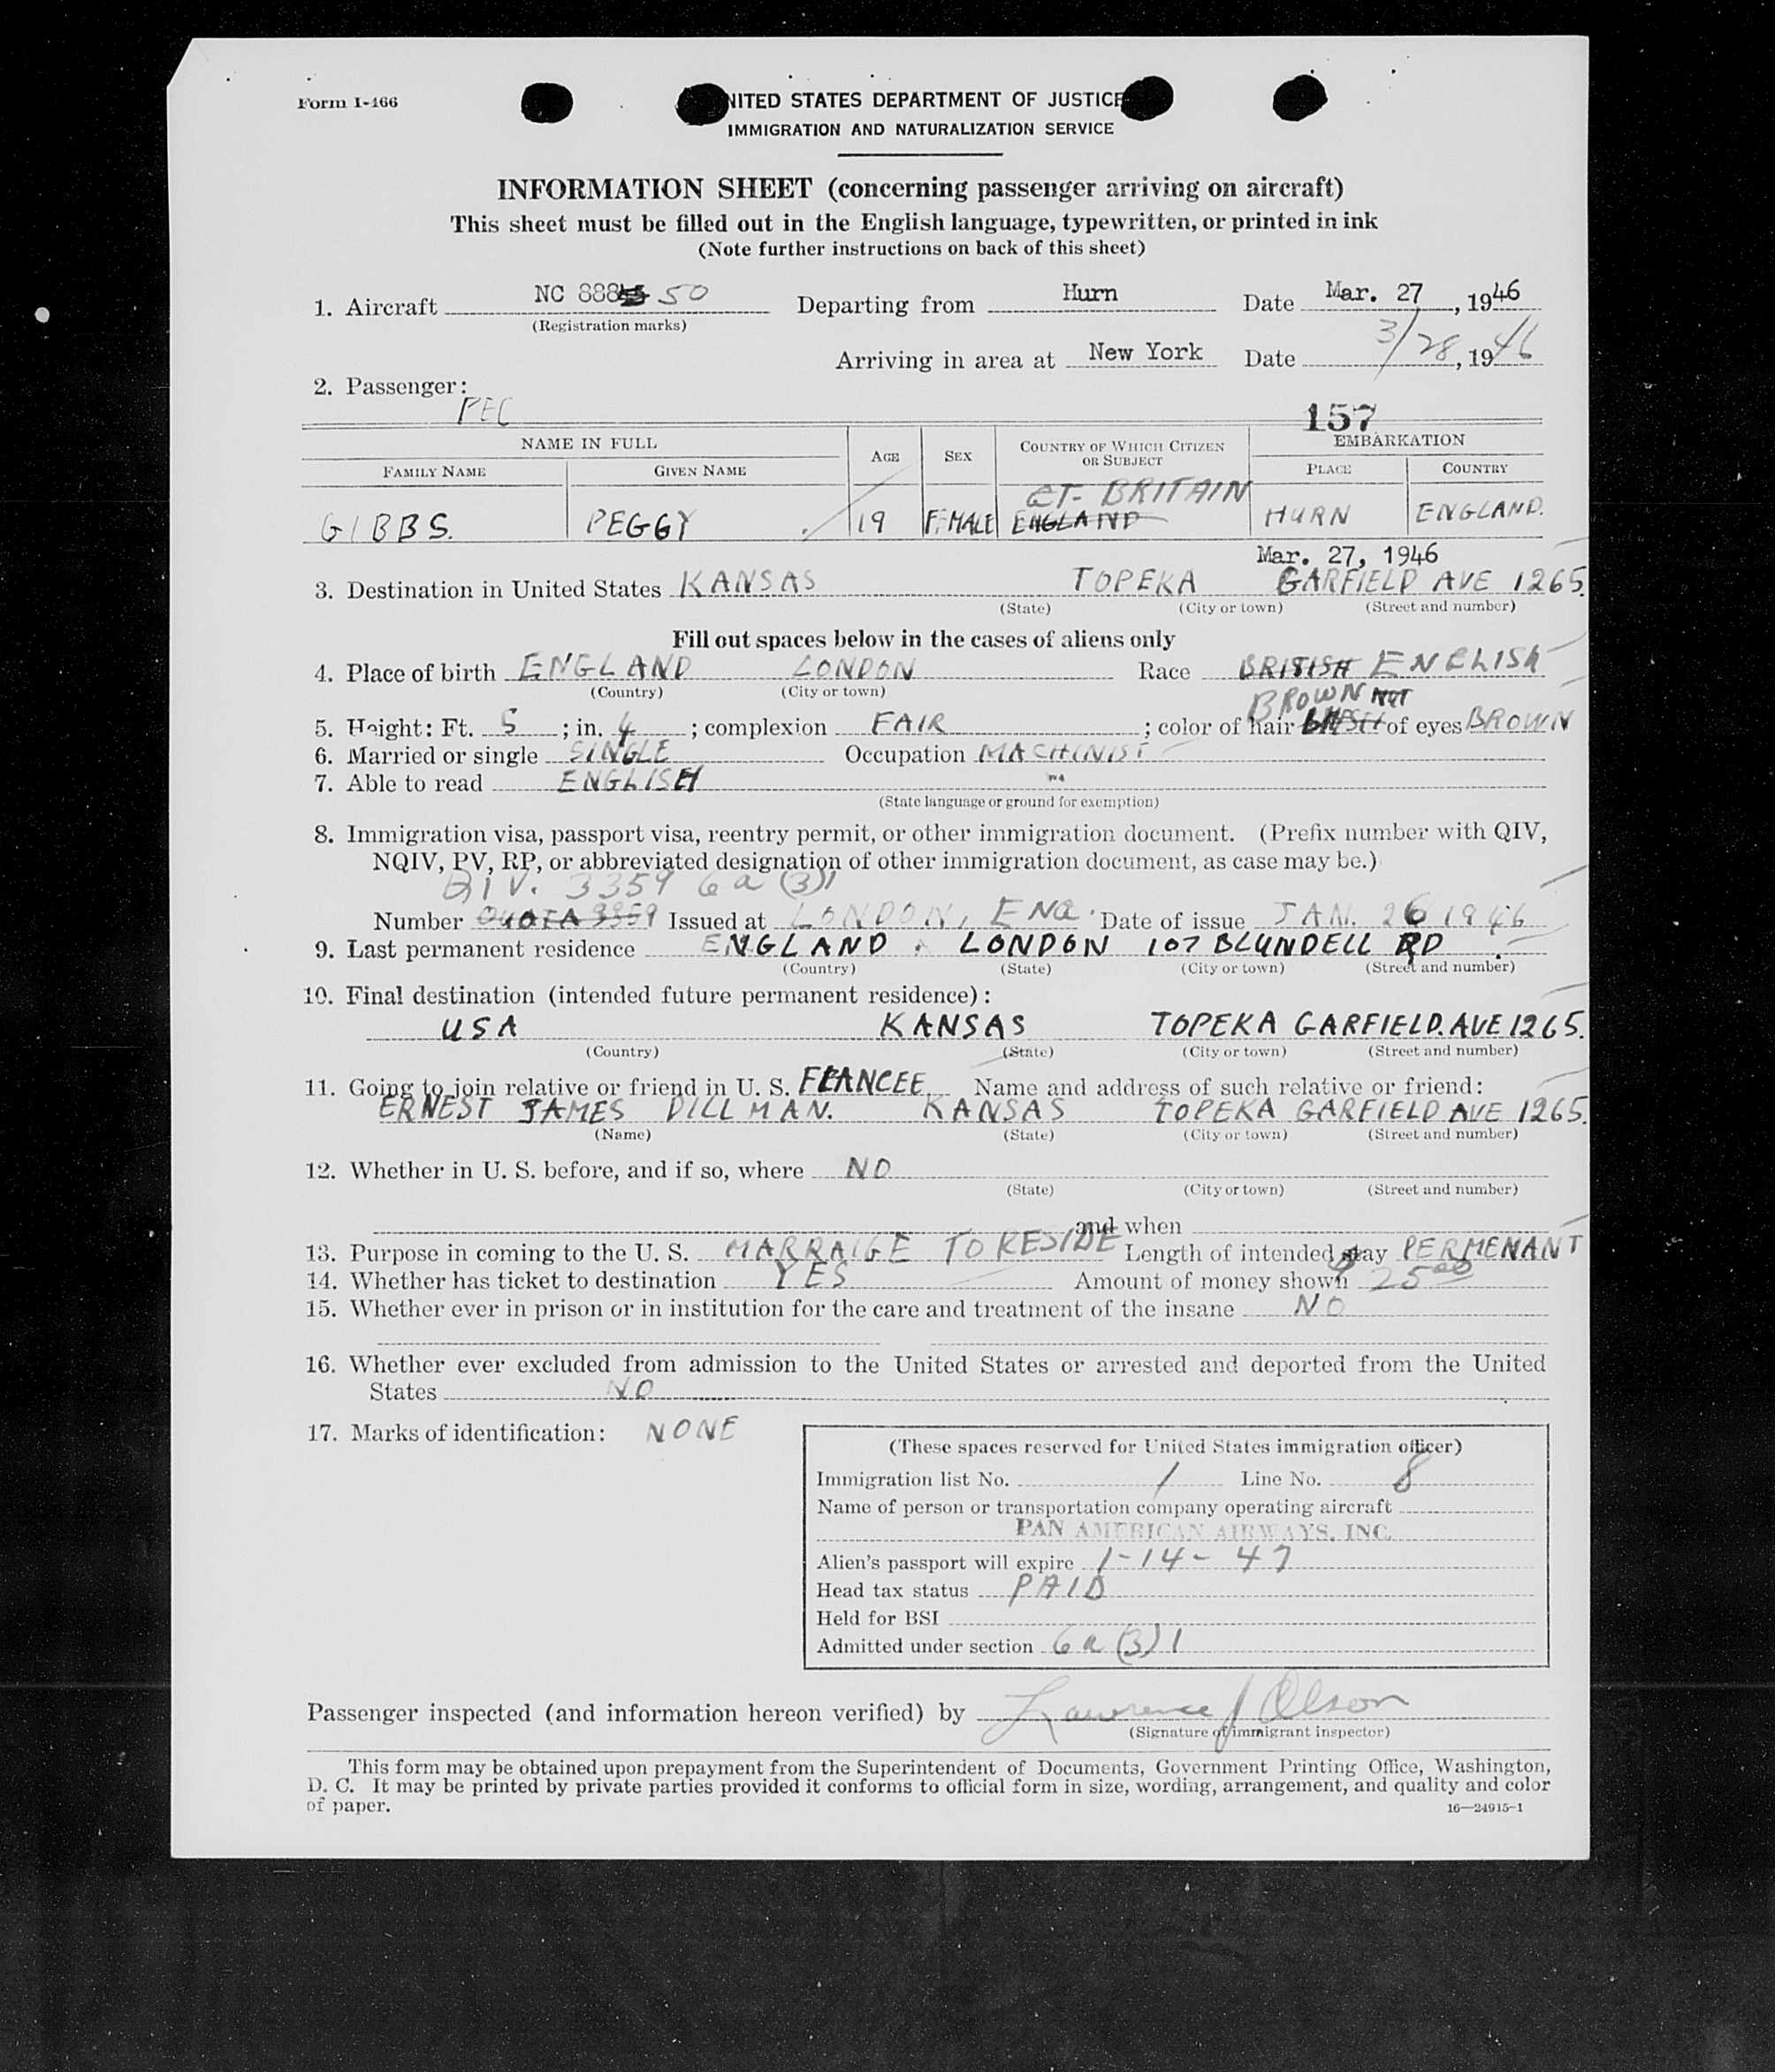 Form I-466
UNITED STATES DEPARTMENT OF JUSTICE
IMMIGRATION AND NATURALIZATION SERVICE
INFORMATION SHEET (concerning passenger arriving on aircraft)
This sheet must be filled out in the English language, typewritten, or printed in ink
(Note further instructions on back of this sheet)
1. Aircraft NC 888 50 Departing from Hurn Date Mar. 27, 1946
(Registration marks)
Arriving in area at New York Date 3/28, 1946
2. Passenger:
PEC
157
NAME IN FULL AGE SEX COUNTRY OF WHICH CITIZEN OR SUBJECT EMBARKATION
FAMILY NAME GIVEN NAME PLACE COUNTRY
GT. BRITAIN
GIBBS. PEGGY 19 FEMALE ENGLAND HURN ENGLAND.
Mar. 27, 1946
3. Destination in United States KANSAS TOPEKA GARFIELD AVE 1265.
(State) (City or town) (Street and number)
Fill out spaces below in the cases of aliens only
4. Place of birth ENGLAND LONDON Race BRITISH ENGLISH
(Country) (City or town)
BROWN
5. Height: Ft. 5 ; in. 4 ; complexion FAIR ; color of hair of eyes BROWN
6. Married or single SINGLE Occupation MACHINIST
7. Able to read ENGLISH
(State language or ground for exemption)
8. Immigration visa, passport visa, reentry permit, or other immigration document. (Prefix number with QIV,
NQIV, PV, RP, or abbreviated designation of other immigration document, as case may be.)
QIV. 3359 6a(3)1
Number QUOTA 3359 Issued at LONDON, ENG. Date of issue JAN. 26 1946
9. Last permanent residence ENGLAND. LONDON 107 BLUNDELL RD
(Country) (State) (City or town) (Street and number)
10. Final destination (intended future permanent residence):
USA KANSAS TOPEKA GARFIELD. AVE 1265.
(Country) (State) (City or town) (Street and number)
11. Going to join relative or friend in U. S. FIANCEE Name and address of such relative or friend:
ERNEST JAMES DILLMAN. KANSAS TOPEKA GARFIELD AVE 1265.
(Name) (State) (City or town) (Street and number)
12. Whether in U. S. before, and if so, where NO
(State) (City or town) (Street and number)
and when
13. Purpose in coming to the U. S. MARRAIGE TO RESIDE Length of intended stay PERMENANT
14. Whether has ticket to destination YES Amount of money shown $ 25 00
15. Whether ever in prison or in institution for the care and treatment of the insane NO
16. Whether ever excluded from admission to the United States or arrested and deported from the United
States NO
17. Marks of identification: NONE
(These spaces reserved for United States immigration officer)
Immigration list No. 1 Line No. 8
Name of person or transportation company operating aircraft
PAN AMERICAN AIRWAYS, INC.
Alien's passport will expire 1-14-47
Head tax status PAID
Held for BSI
Admitted under section 6a(3)1
Passenger inspected (and information hereon verified) by Lawrence J Olson
(Signature of immigrant inspector)
This form may be obtained upon prepayment from the Superintendent of Documents, Government Printing Office, Washington,
D. C. It may be printed by private parties provided it conforms to official form in size, wording, arrangement, and quality and color
of paper.
16—24915-1